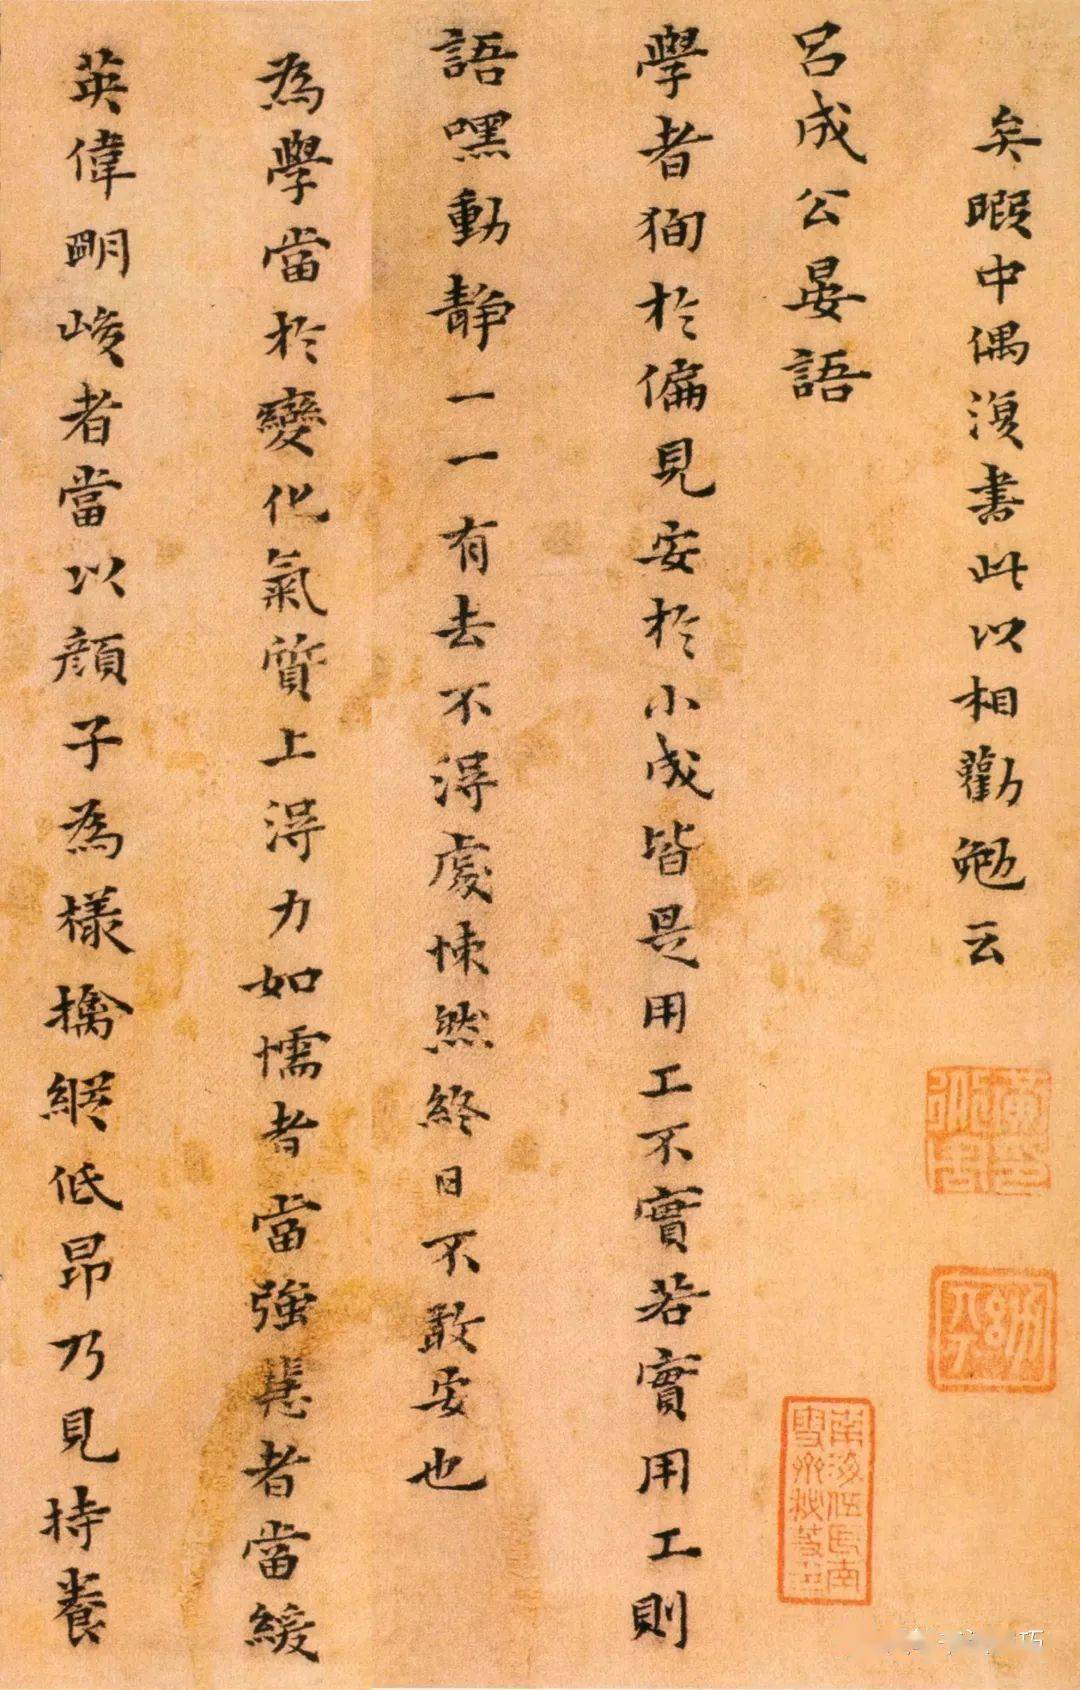 矣暇中偶復書此以相勸勉云
呂成公晏語
學者狥於偏見安於小成皆是用工不實若實用工則
語嘿動靜一一有去不得處悚然終日不敢安也
為學當於變化氣質上得力如懦者當強急者當緩
英偉明峻者當以顏子為樣擒縱低昂乃見持養